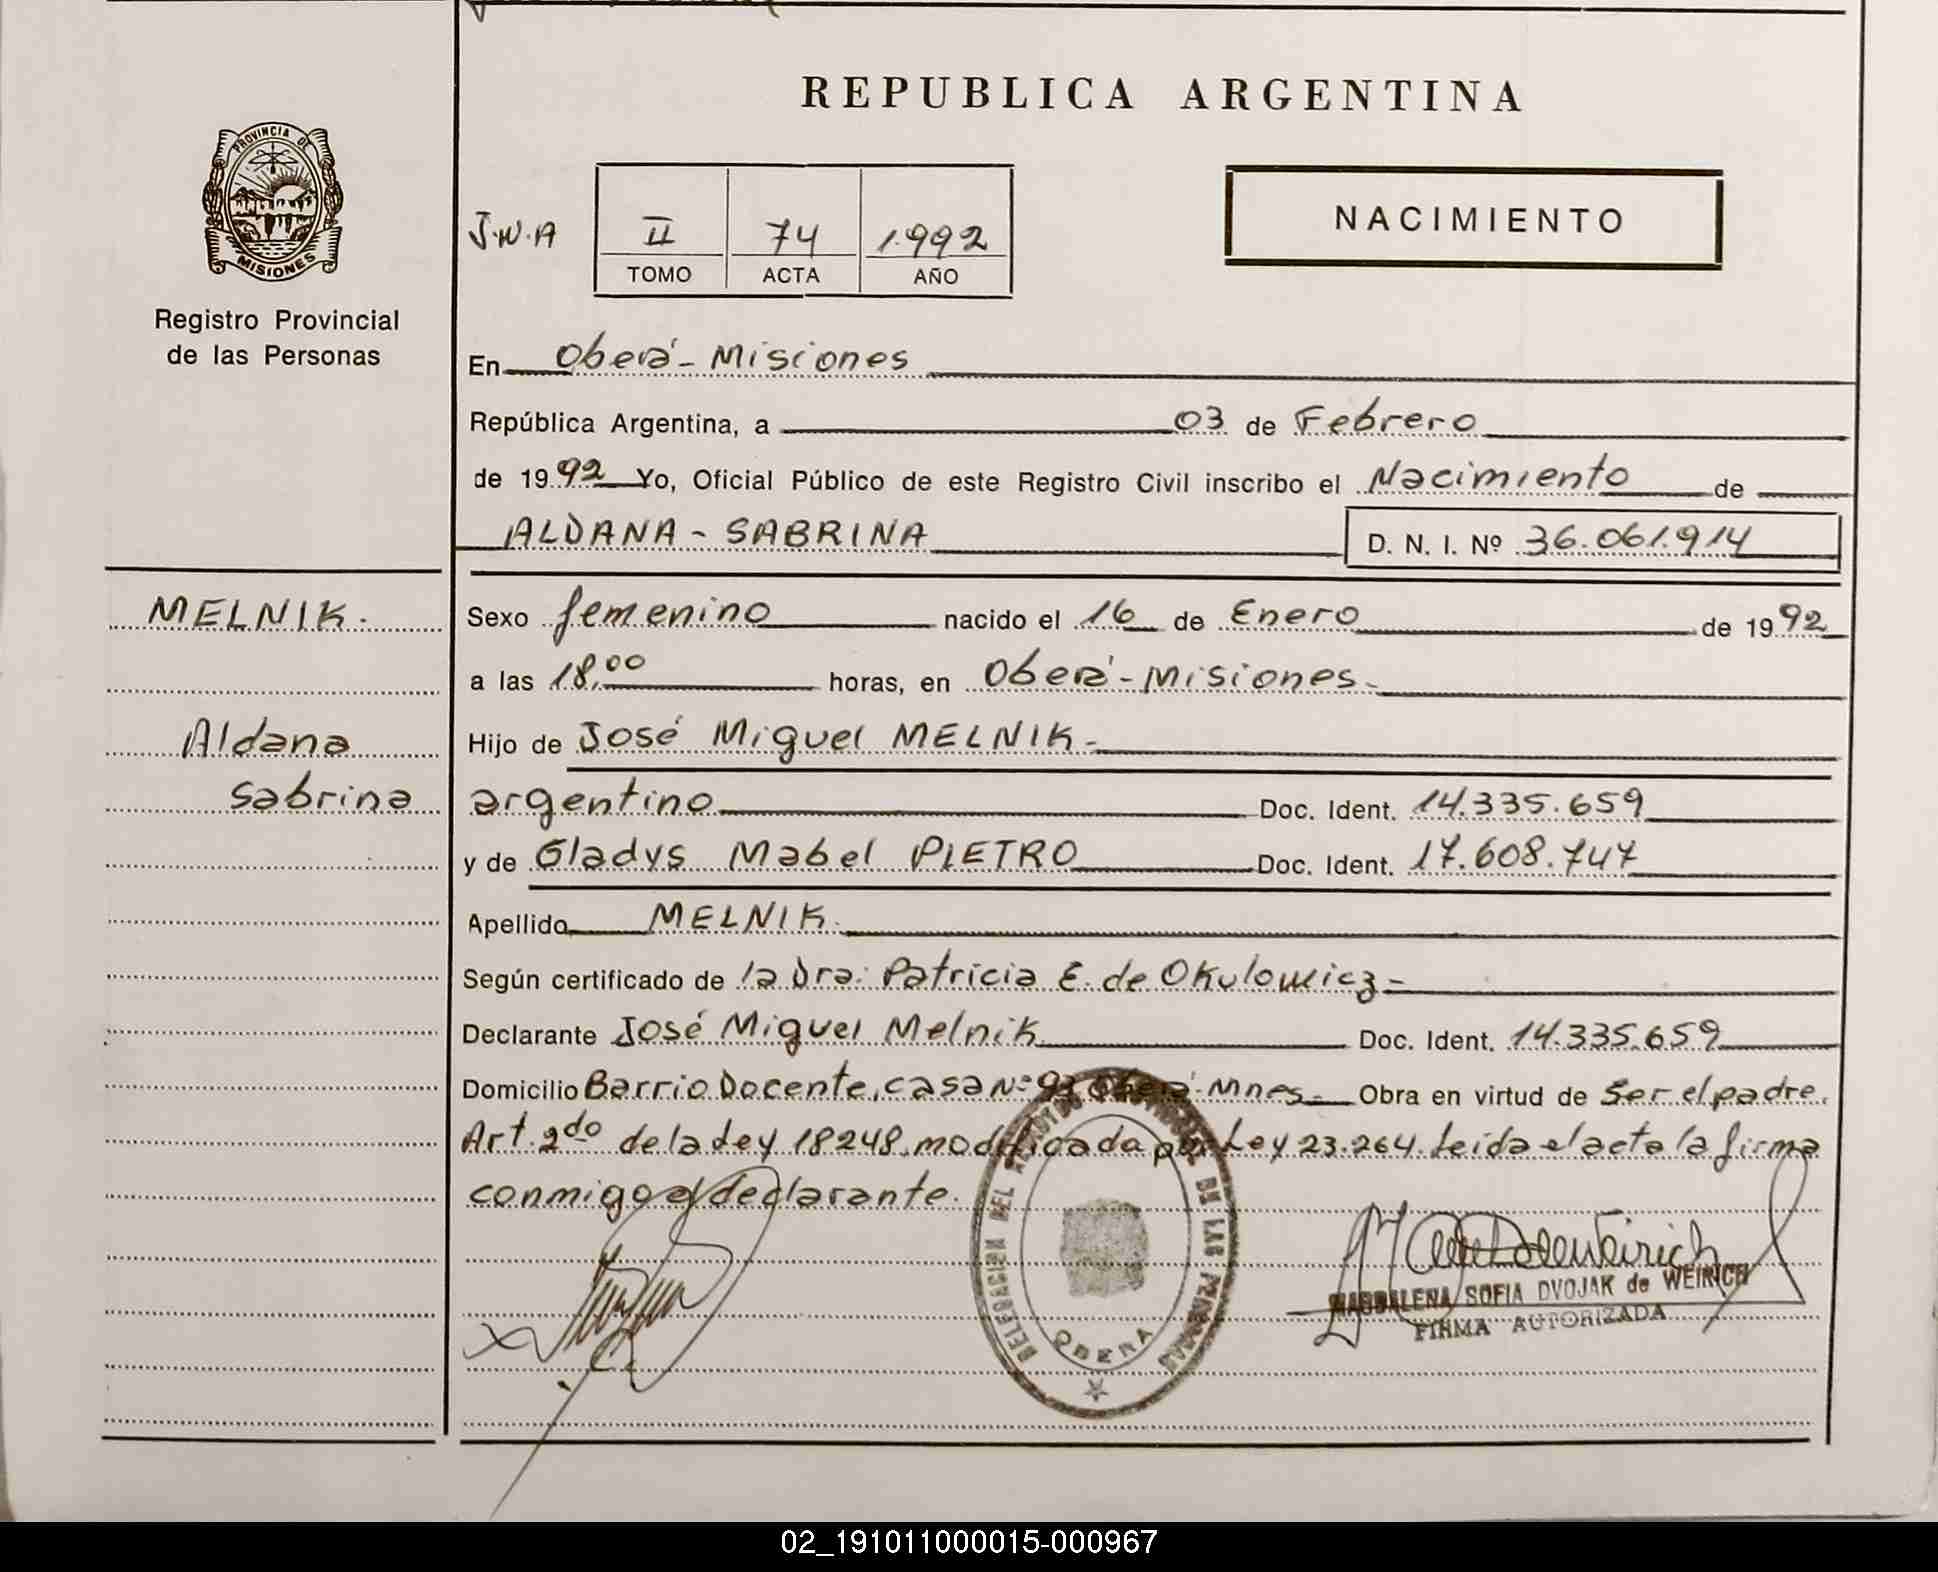 REPUBLICA ARGENTINA
PROVINCIA DE
MISIONES
Registro Provincial
de las Personas
J.N.A
II 74 1.992
TOMO ACTA AÑO
NACIMIENTO
En Oberá - Misiones
República Argentina, a 03 de Febrero
de 1992 Yo, Oficial Público de este Registro Civil inscribo el Nacimiento de
ALDANA - SABRINA D. N. I. Nº 36.061.914
MELNIK.
Aldana
Sabrina
Sexo femenino nacido el 16 de Enero de 1992
a las 18,00 horas, en Oberá - Misiones -
Hijo de José Miguel MELNIK -
argentino Doc. Ident. 14.335.659
y de Gladys Mabel PIETRO Doc. Ident. 17.608.747
Apellido MELNIK.
Según certificado de la Dra. Patricia E. de Okulowicz -
Declarante José Miguel Melnik Doc. Ident. 14.335.659
Domicilio Barrio Docente, casa Nº 93 Oberá - Mnes. Obra en virtud de Ser el padre.
Art. 2do de la Ley 18248, modificada por Ley 23.264. Leída el acta la firma
conmigo el declarante.
DELEGACION DEL REGISTRO PROVINCIAL DE LAS PERSONAS
OBERA
MAGDALENA SOFIA DVOJAK de WEIRICH
FIRMA AUTORIZADA
02_191011000015-000967